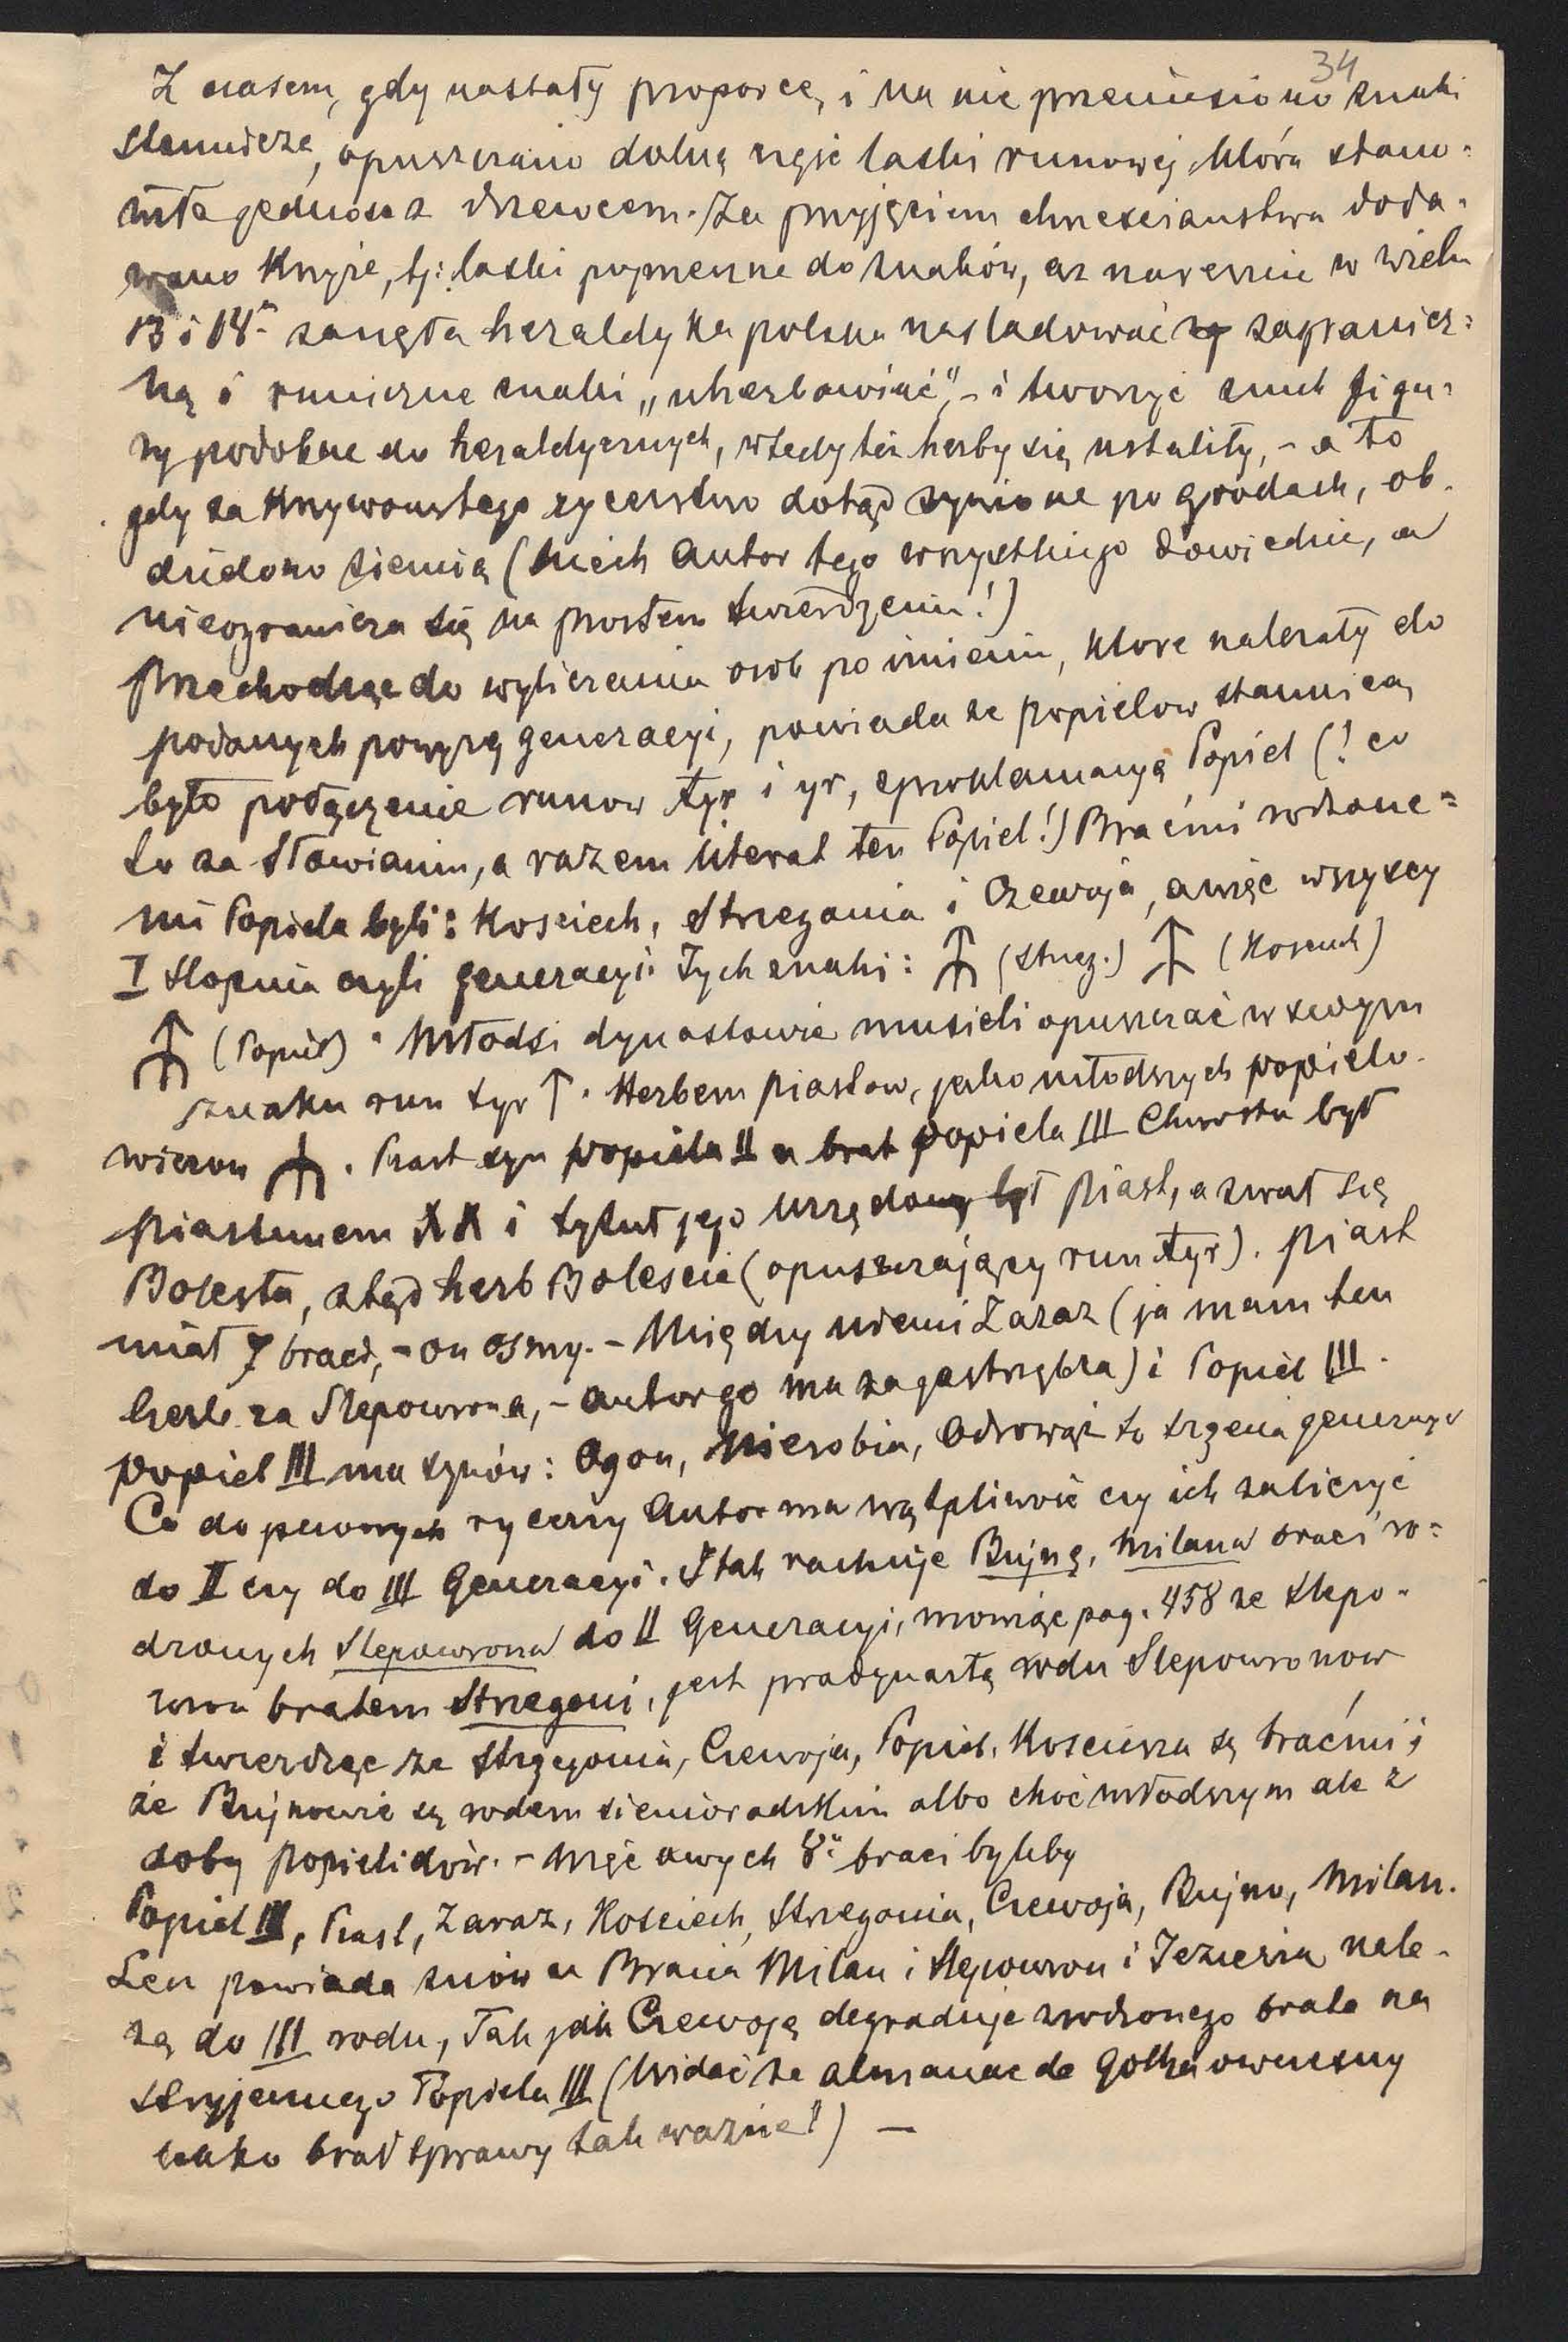 34
Z czasem, gdy nastały proporce, i na nie przeniesiono znaki
stannicze, opuszczano dolną część laski runowej, która stano=
wiła jedność z drzewcem. Za przyjęciem chrześciaństwa doda=
wano Krzyże, tj: laski poprzeczne do znaków, aż nareszcie w wieku
13 i 14ᵐ zaczęła heraldyka polska nasladować zagranicz=
ną i runiczne znaki „uherbowiać", - i tworzyć z nich figu=
ry podobne do heraldycznych, wtedy też herby się ustaliły, - a to
gdy za Krzywoustego rycerstwo dotąd żywione po grodach, ob-
dzielono ziemią (Niech autor tego wszystkiego dowiedzie, a
nieogranicza się na prostem twierdzeniu!)
Przechodząc do wyliczenia osób po imieniu, które należały do
podanych powyżej generacyi, powiada że popielow stannicą
było połączenie runow tyr i yr, z proklamacyą Popiel (! co
to za Słowianin, a razem literat ten Popiel!) Braćmi rodzone=
mi Popiela byli: Kosciech, Strzegonia i Czewoja, a więc wszyscy
I stopnia czyli generacyi. Tych znaki: (Strzeg.) (Kosciech)
(Popiel) . Młodsi dynastowie musieli opuszczać w swoym
znaku run tyr ↑ . Herbem Piastow, jako młodszych popielo-
wiczow . Piast syn popiela II a brat popiela III Chwosta był
piastunem i tytuł jego urzędowy był piast, a zwał się
Bolesta, ztąd herb Bolescic (opuszczający run tyr). Piast
miał 7 braci, - on osmy. - Między niemi Zaraz (ja mam ten
herb za Slepowrona, - autor go ma za Jastrzębza) i Popiel III.
Popiel III ma synów: Ogon, Nierobia, Odrowąż to trzecia generacya
Co do pewnych rycerzy autor ma wątpliwość czy ich zaliczyć
do II czy do III Generacyi. I tak rachuje Bujnę, Milana braci ro=
dzonych Slepowrona do II Generacyi, mowiąc pag. 458 że slepo-
wron bratem Strzegoni, jest pradynastą rodu Slepowronow
i twierdząc że Strzegonia, Czewoja, Popiel, Kosciesza są braćmi i
że Bujnowie są rodem sieniorackim albo choć młodszym ale z
doby popielidów. - Więc owych 8ᵘ braci byliby
Popiel III, Piast, Zaraz, Kosciech, Strzegonia, Czewoja, Bujno, Milan.
Lecz powiada znów że Bracia Milan i Slepowron i Jezierza nale-
żą do III rodu, Tak jak Czewoję degraduje z rodzonego brata na
stryjecznego Popiela III (Widać że almanac de Gotha owczesny
brał sprawy tak ważne!) —